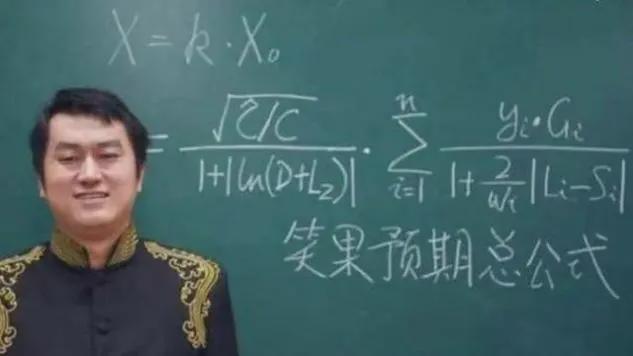 X = k · X₀
= √(č/C) / (1+|ln(D+L₂)|) · Σ_{i=1}^{n} (yᵢ·Gᵢ) / (1+(2/wᵢ)|Lᵢ-Sᵢ|)
笑果预期总公式